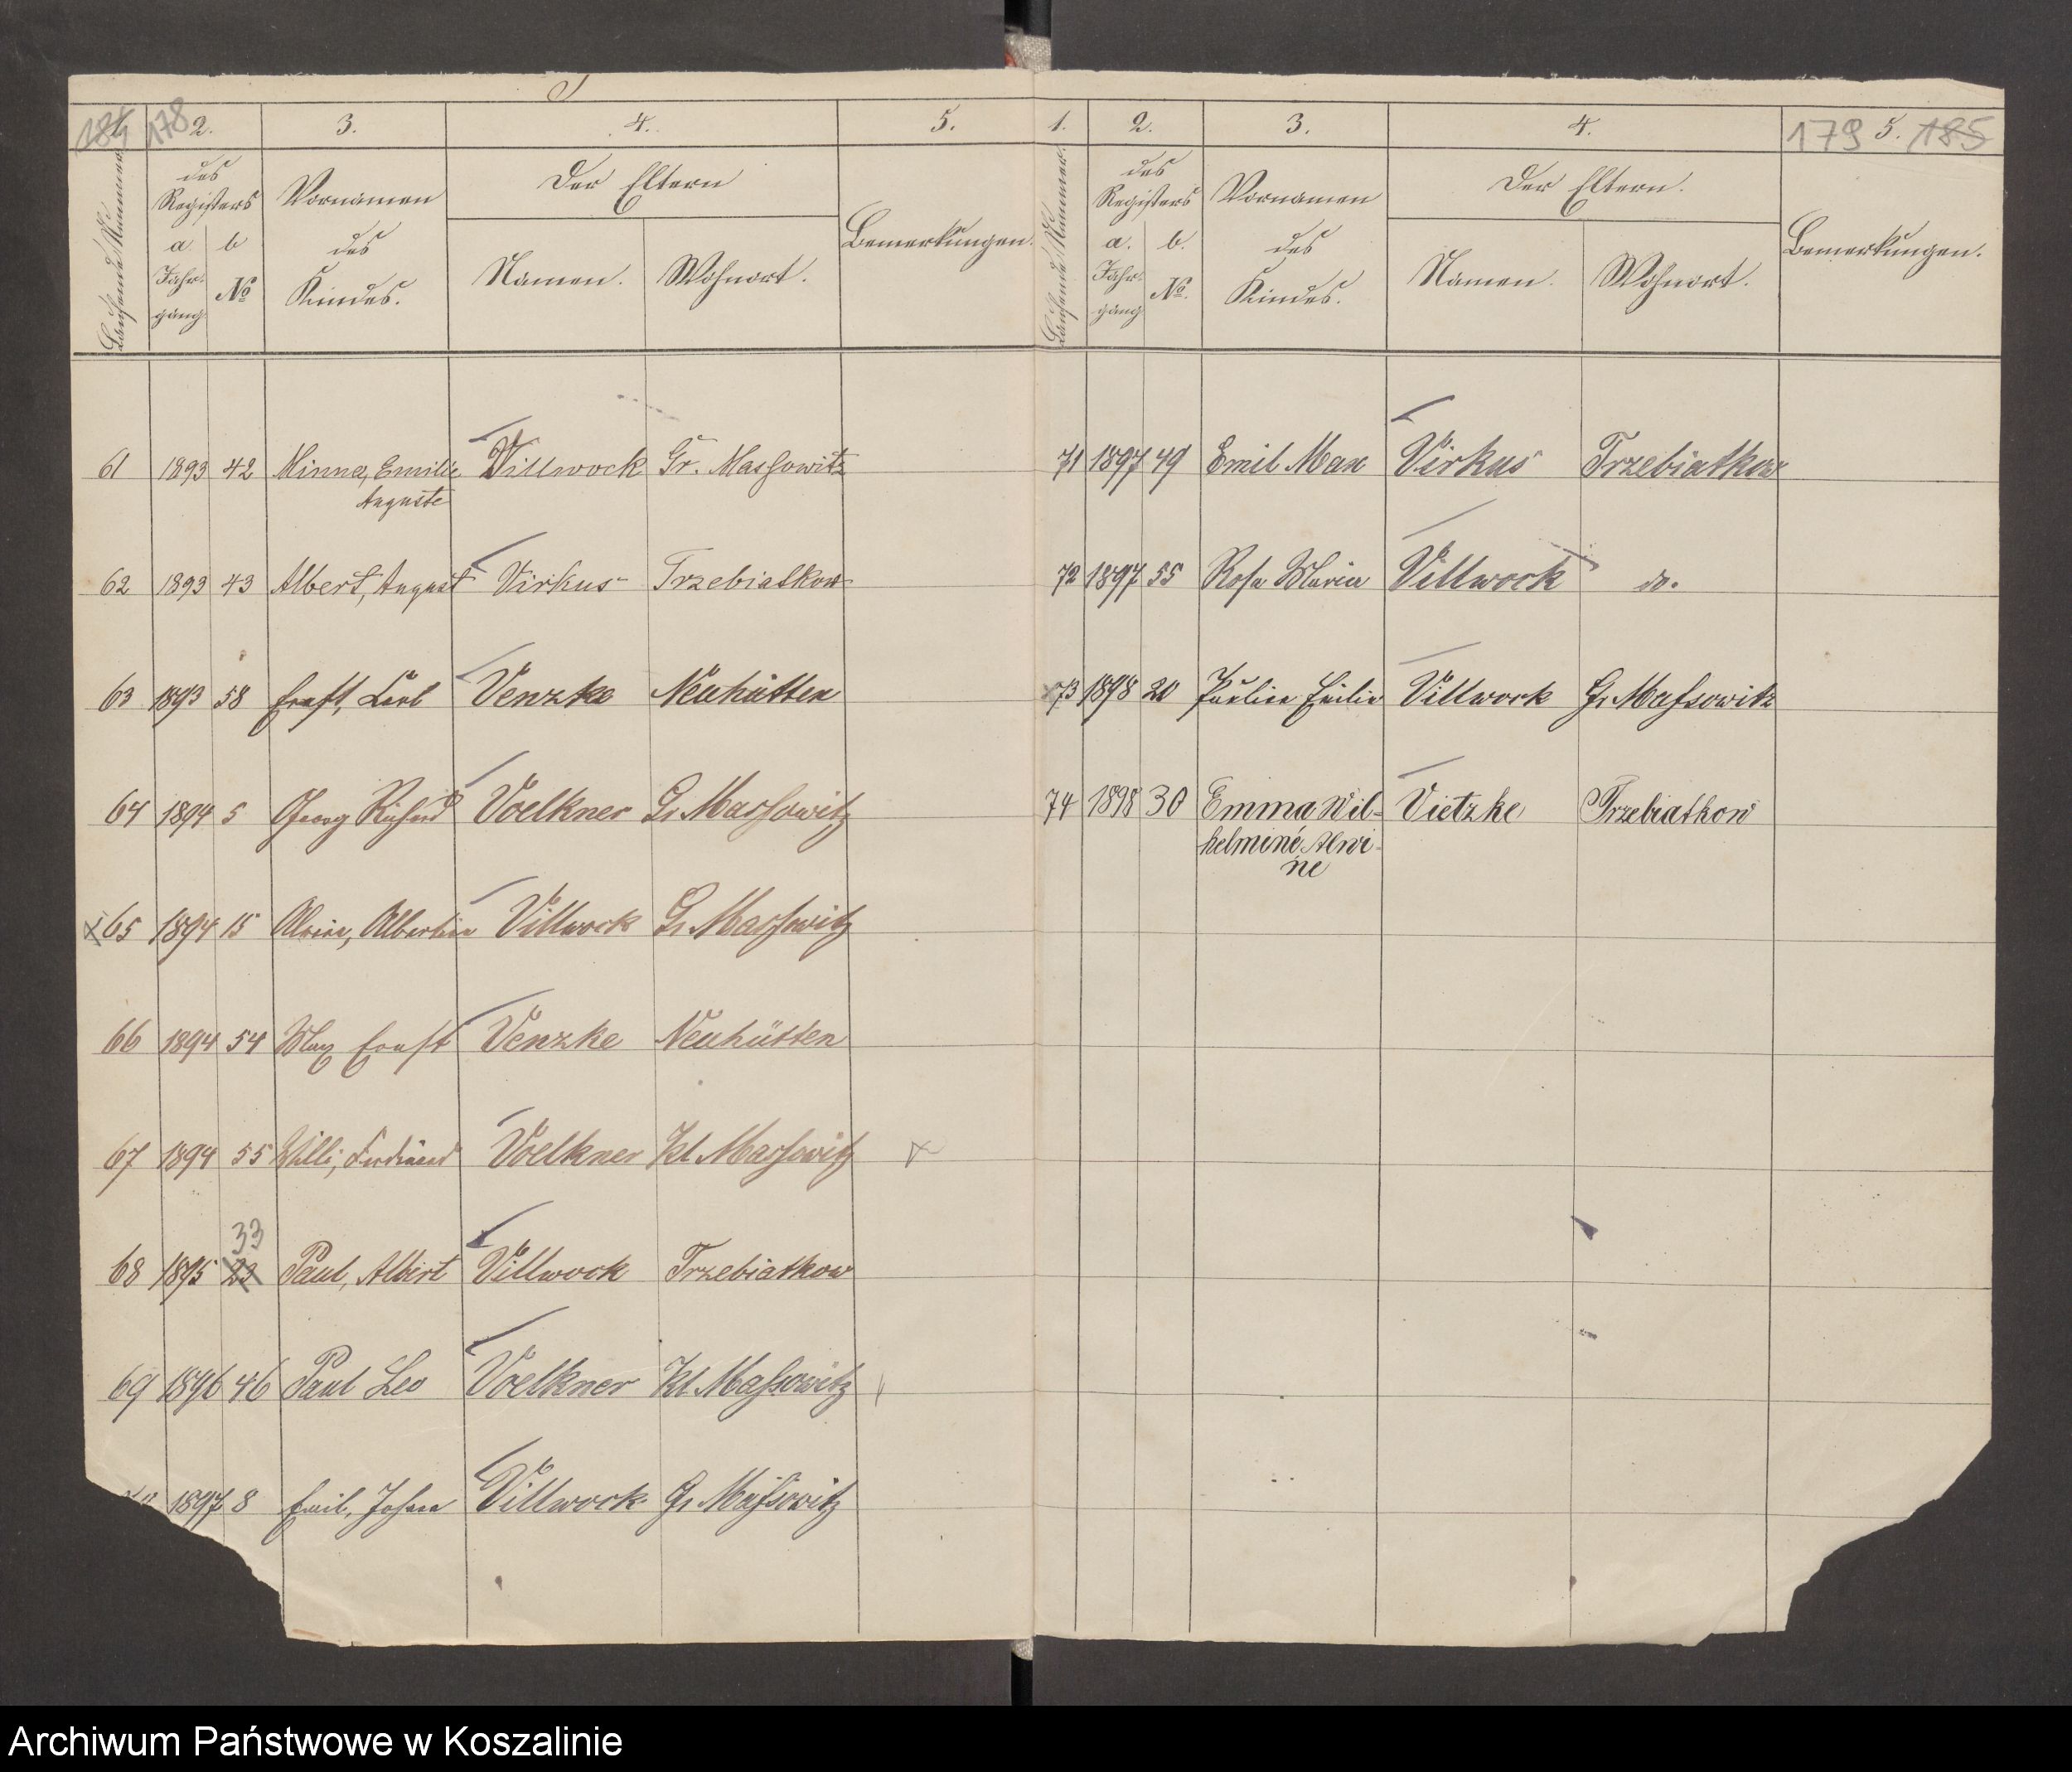 184 178
1. 2. 3. 4. 5.
Laufende Nummer
des Registers
a Jahrgang
b No
Vornamen
des
Kindes.
Der Eltern
Namen. Wohnort.
Bemerkungen.
61 1893 42 Minna, Emilie Villwock Gr. Massowitz
Auguste
62 1893 43 Albert, August Virkus Trzebiatkow
63 1893 58 Ernst, Carl Venzke Neuhütten
64 1894 5 Georg Richard Voelkner Gr Massowitz
65 1894 15 Albertine Villwock Gr Massowitz
66 1894 54 Max Ernst Venzke Neuhütten
67 1894 55 Willi, Ferdinand Voelkner Kl Massowitz
33
68 1895 23 Paul, Albert Villwock Trzebiatkow
69 1896 46 Paul Leo Voelkner Kl Massowitz
1897 8 Emil, Johann Villwock Gr Massowitz
179 185
1. 2. 3. 4. 5.
Laufende Nummer.
des
Registers
a. Jahrgang
b. No.
Vornamen
des
Kindes.
Der Eltern.
Namen. Wohnort.
Bemerkungen.
71 1897 49 Emil Max Virkus Trzebiatkow
72 1897 55 Rosa Maria Villwock do.
73 1898 20 Pauline Emilie Villwock Gr Massowitz
74 1898 30 Emma Wil- Vietzke Trzebiatkow
helmine Alwi-
ne
Archiwum Państwowe w Koszalinie